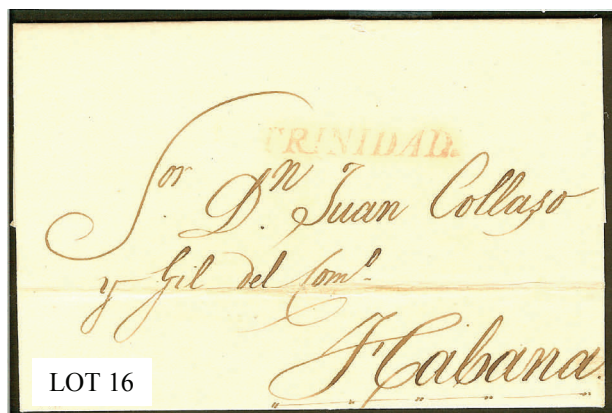 TRINIDAD.
Sor Dn Juan Collaso
y Gil del Como
Habana
LOT 16